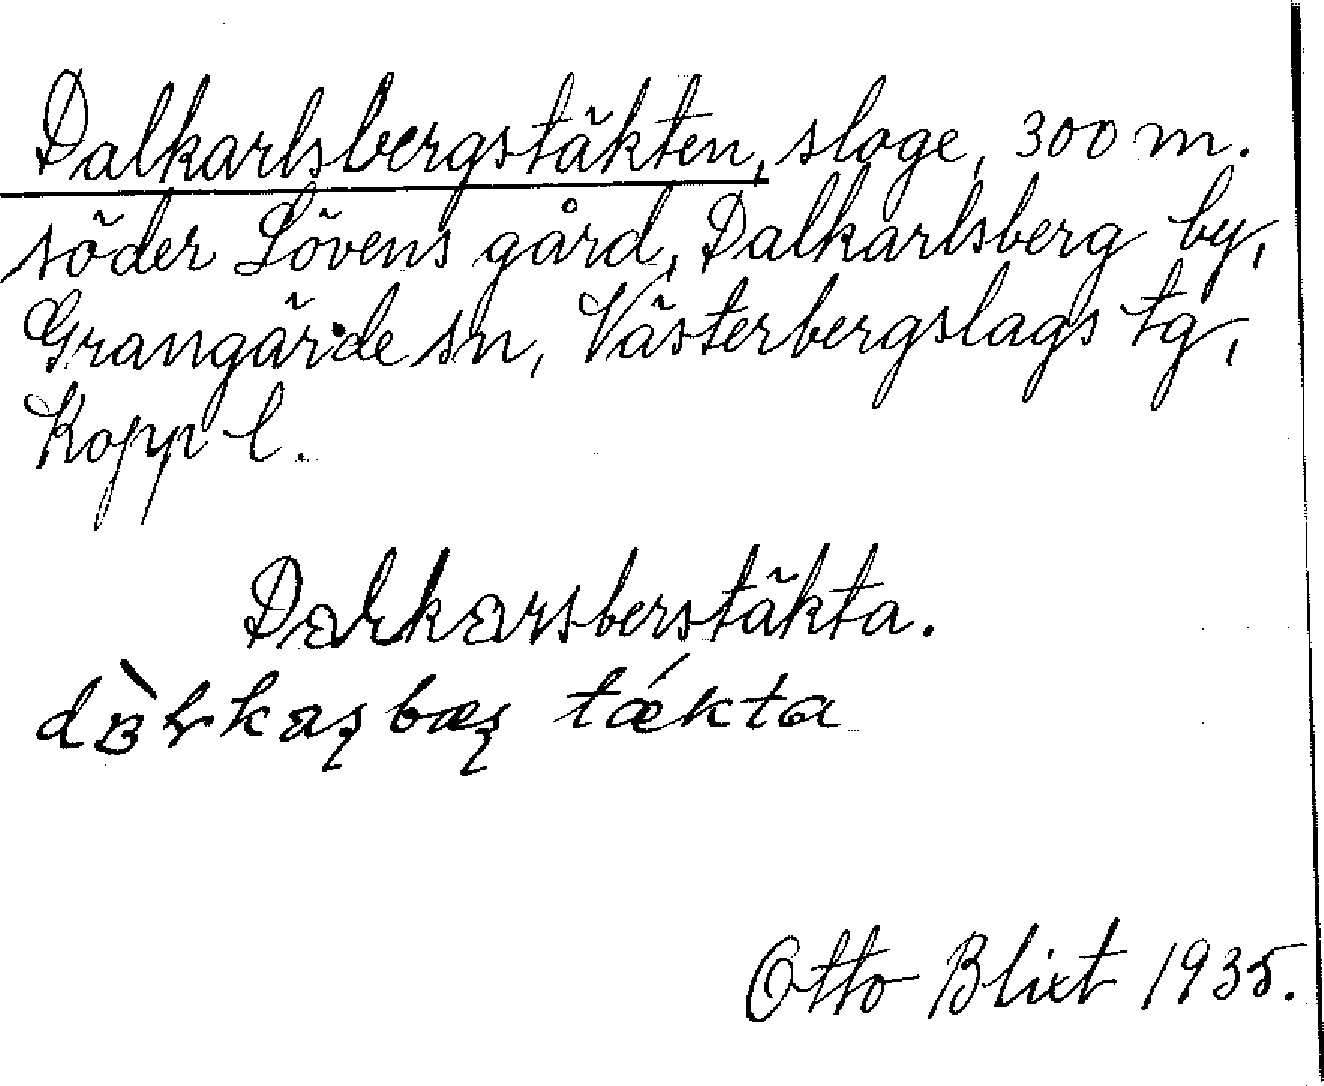 Dalkarlsbergstäkten, sloge, 300 m.
söder Lövens gård, Dalkarlsberg by,
Grangärde sn, Västerbergslags tg,
Kopp l.
Dalkarsberstäkta.
tǽkta
Otto Blixt 1935.